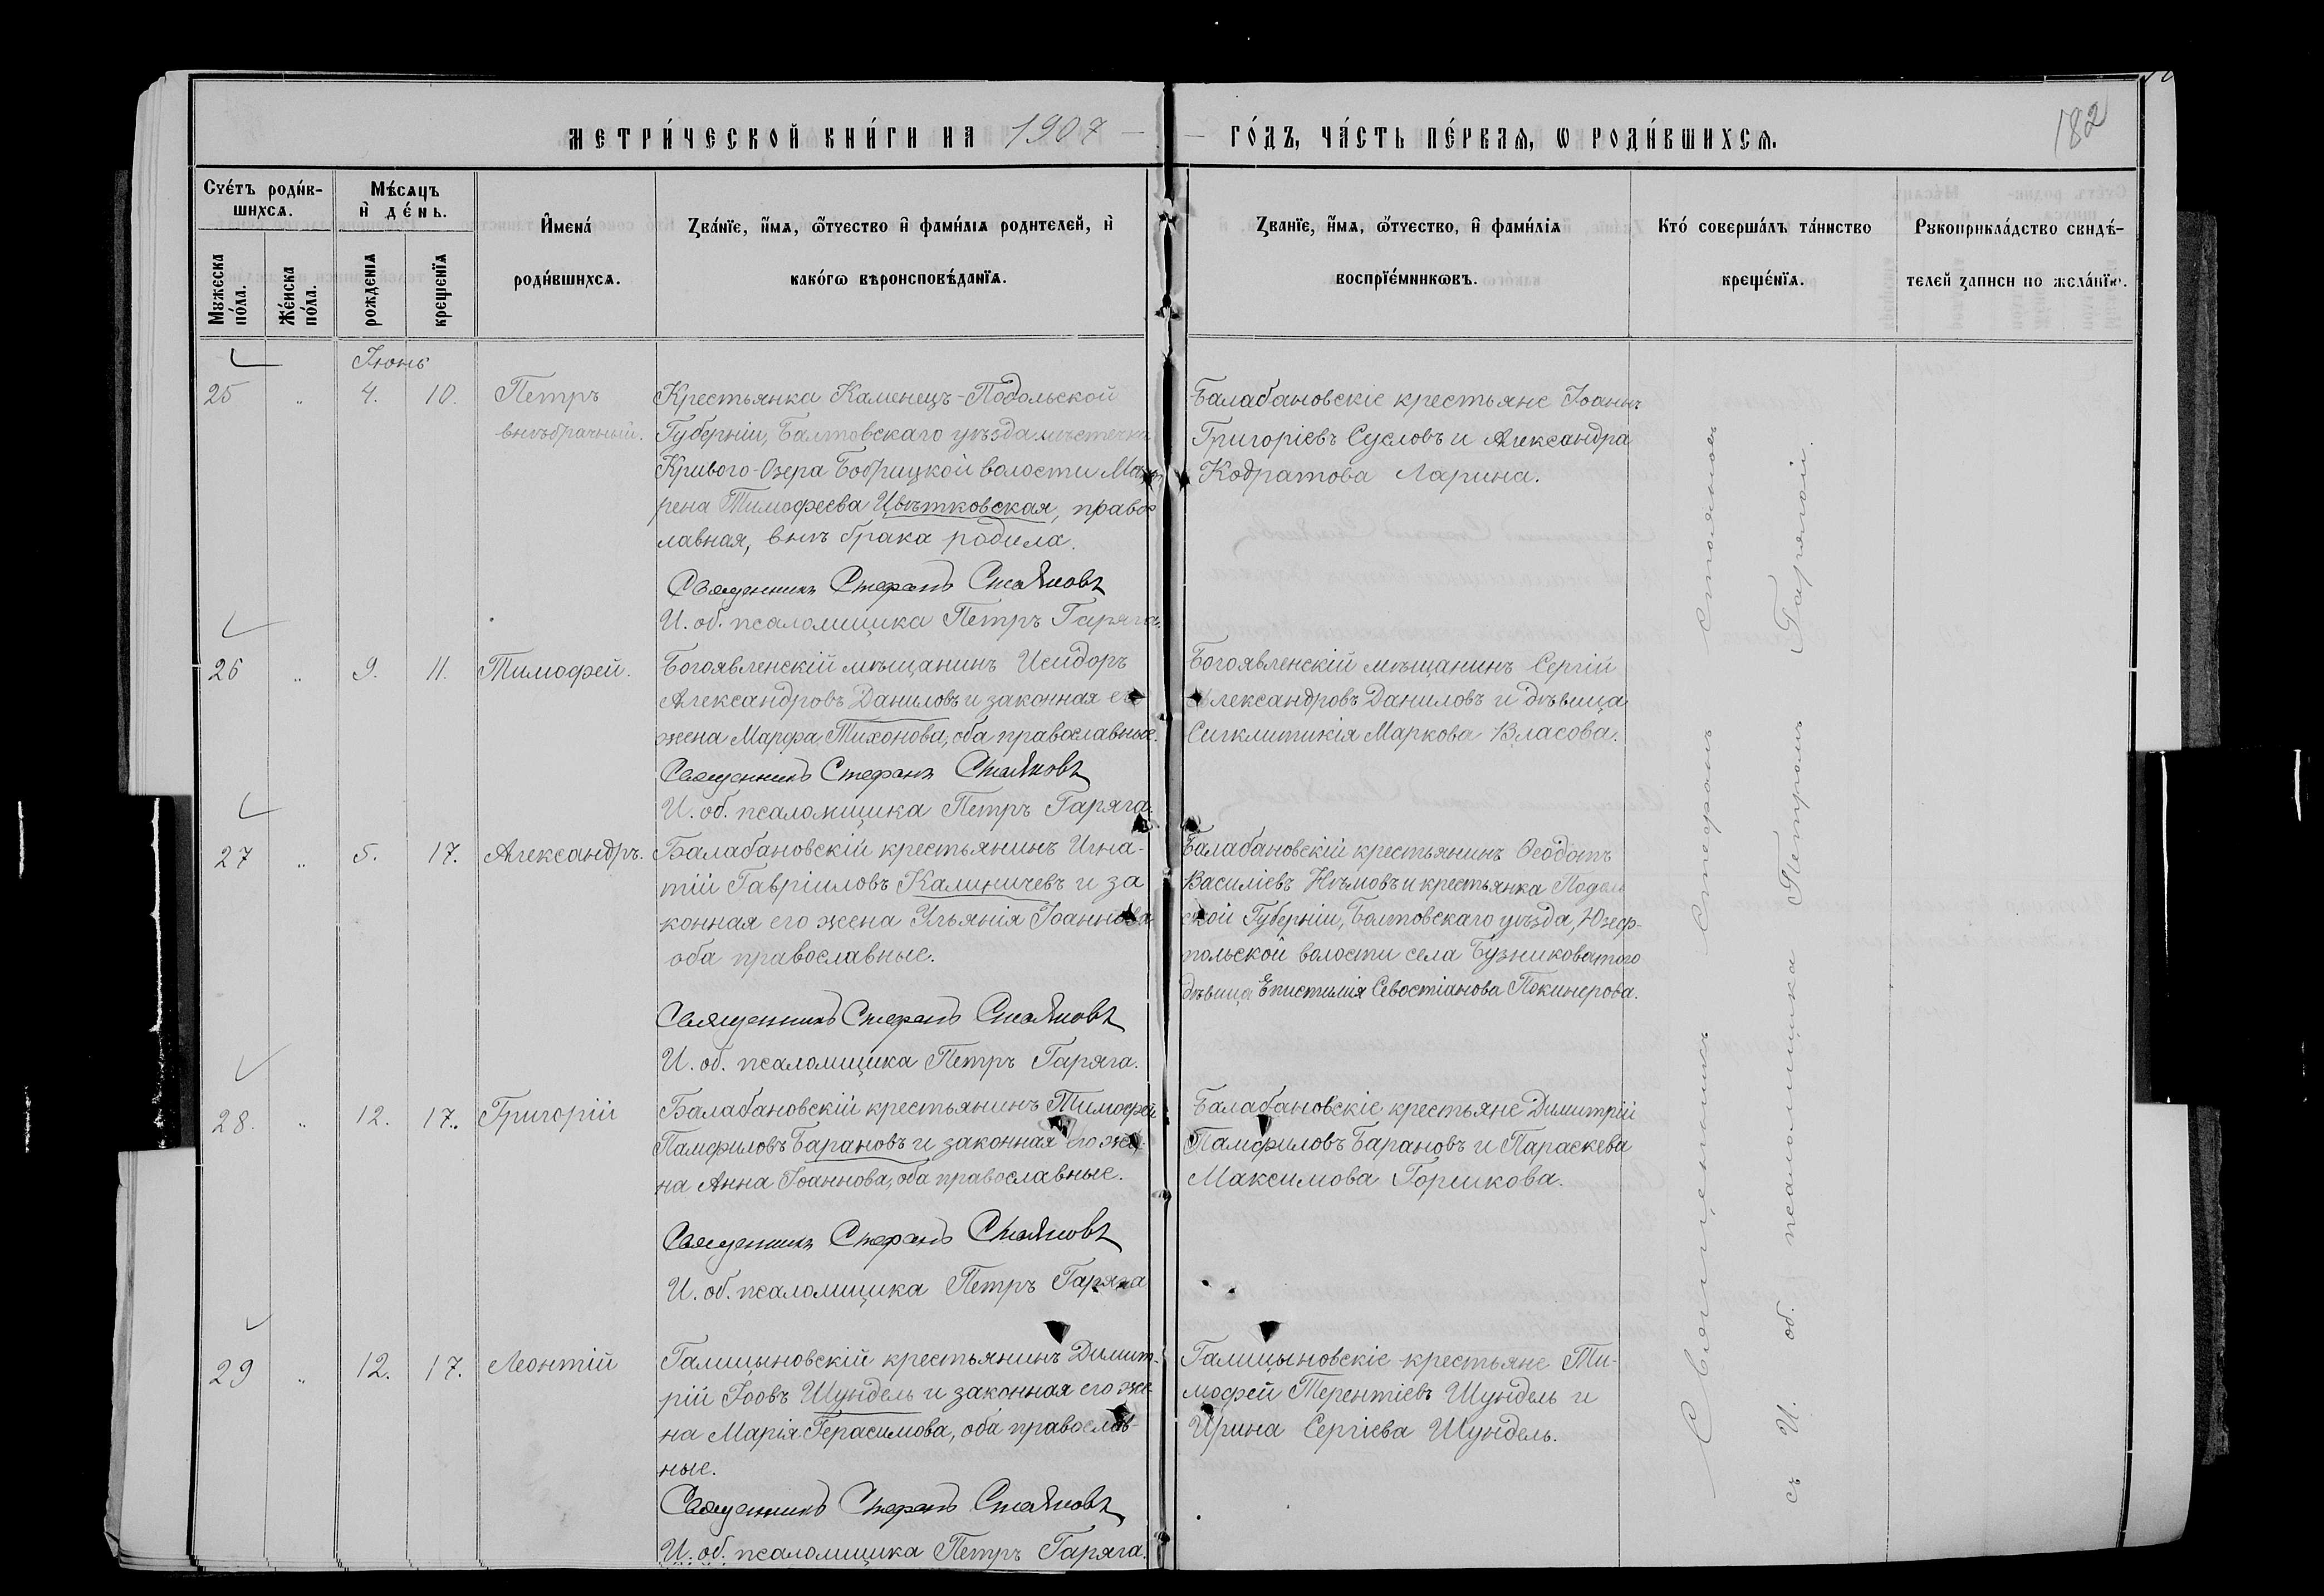 МЕТРИ́ЧЕСКОЙ КНИ́ГИ НА 1907 ГО́ДЪ, ЧА́СТЬ ПЕ́РВАѦ, Ѡ РОДИ́ВШИХСѦ.
182
Счéтъ роди́в-
шихсѧ.
Мꙋжеска по́ла.
Же́нска по́ла.
Мѣ́сѧцъ
и҆ де́нь.
рожденїѧ
крещенїѧ
И҆мена́
роди́вшихсѧ.
Зва́нїе, и҆́мѧ, ѻ҆́тчество и҆ фами́лїѧ родителей, и҆
како́гѡ вѣроисповѣ́данїѧ.
Зва́нїе, и҆́мѧ, ѻ҆́тчество, и҆ фами́лїѧ
воспрїе́мникѡвъ.
Кто́ соверша́лъ та́инство
креще́нїѧ.
Рꙋкоприкла́дство свидѣ́-
телей записи по жела́нїю.
Іюнь
25 " 4. 10. Петръ
внѣбрачный.
Крестьянка Каменецъ-Подольской
Губерніи, Балтовскаго уѣзда мѣстечка
Кривого-Озера Бобрицкой волости Мат
рена Тимофеева Цвѣтковская, правос
лавная, внѣ брака родила.
Священникъ Стефанъ Стояновъ
И. об. псаломщика Петръ Гаряга.
Балабановскіе крестьяне Іоаннъ
Григоріевъ Сусловъ и Александра
Кодратова Ларина.
26 " 9. 11. Тимофей.
Богоявленскій мѣщанинъ Исидоръ
Александровъ Даниловъ и законная его
жена Марфа Тихонова, оба православные.
Священникъ Стефанъ Стояновъ
И. об. псаломщика Петръ Гаряга.
Богоявленскій мѣщанинъ Сергій
Александровъ Даниловъ и дѣвица
Сигклитикія Маркова Власова.
27 " 5. 17. Александръ.
Балабановскій крестьянинъ Игна-
тій Гавріиловъ Калиничевъ и за
конная его жена Ульянія Іоаннова
оба православные.
Священникъ Стефанъ Стояновъ
И. об. псаломщика Петръ Гаряга.
Балабановскій крестьянинъ Ѳеодотъ
Василіевъ Нѣмовъ и крестьянка Подоль
ской Губерніи, Балтовскаго уѣзда, Юзеф-
польской волости села Бузниковатого
дѣвица Епистимія Севостіанова Покинерова.
28. " 12. 17. Григорій
Балабановскій крестьянинъ Тимофей
Памфиловъ Барановъ и законная его же-
на Анна Іоаннова, оба православные.
Священникъ Стефанъ Стояновъ
И. об. псаломщика Петръ Гаряга
Балабановскіе крестьяне Димитрій
Памфиловъ Барановъ и Параскева
Максимова Горшкова.
29 " 12. 17. Леонтій
Галицыновскій крестьянинъ Димит-
рій Іовъ Шундель и законная его же
на Марія Герасимова, оба православ-
ные.
Священникъ Стефанъ Стояновъ
И. об. псаломщика Петръ Гаряга.
Галицыновскіе крестьяне Ти-
мофей Терентіевъ Шундель и
Ирина Сергіева Шундель.
Священникъ Стефанъ Стояновъ
съ И. об. псаломщика Петромъ Гарягой.